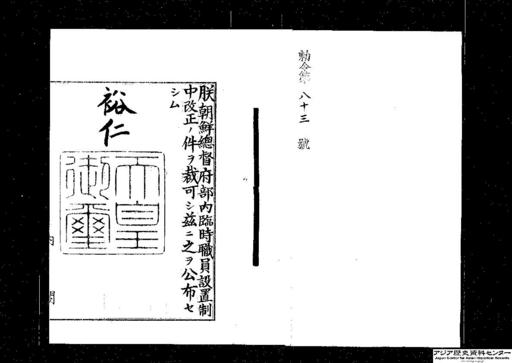 勅令第八十三號
朕朝鮮總督府部內臨時職員設置制
中改正ノ件ヲ裁可シ茲ニ之ヲ公布セ
シム
裕仁
天皇
御璽
內閣
アジア歴史資料センター
Japan Center for Asian Historical Records